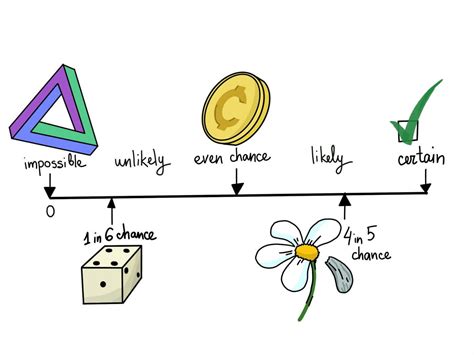 impossible
unlikely
even chance
likely
certain
0
1 in 6 chance
4 in 5
chance